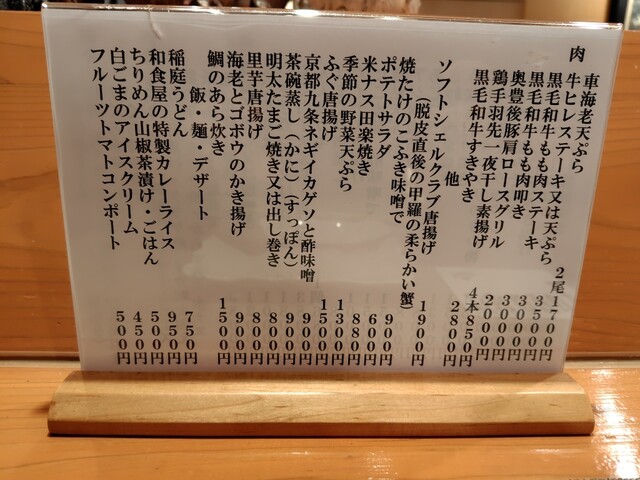 車海老天ぷら 2尾1700円
肉
牛ヒレステーキ又は天ぷら 3500円
黒毛和牛もも肉ステーキ 3000円
黒毛和牛もも肉叩き 3000円
奥豊後豚肩ロースグリル 2000円
鶏手羽先一夜干し素揚げ 4本850円
黒毛和牛すきやき 2800円
他
ソフトシェルクラブ唐揚げ 1900円
(脱皮直後の甲羅の柔らかい蟹)
焼たけのこふき味噌で 900円
ポテトサラダ 600円
米ナス田楽焼き 880円
季節の野菜天ぷら 1300円
ふぐ唐揚げ 1500円
京都九条ネギイカゲソと酢味噌 900円
茶碗蒸し(かに)(すっぽん) 900円
明太たまご焼き又は出し巻き 800円
里芋唐揚げ 800円
海老とゴボウのかき揚げ 900円
鯛のあら炊き 1500円
飯・麺・デザート
稲庭うどん 750円
和食屋の特製カレーライス 950円
ちりめん山椒茶漬け・ごはん 500円
白ごまのアイスクリーム 450円
フルーツトマトコンポート 500円